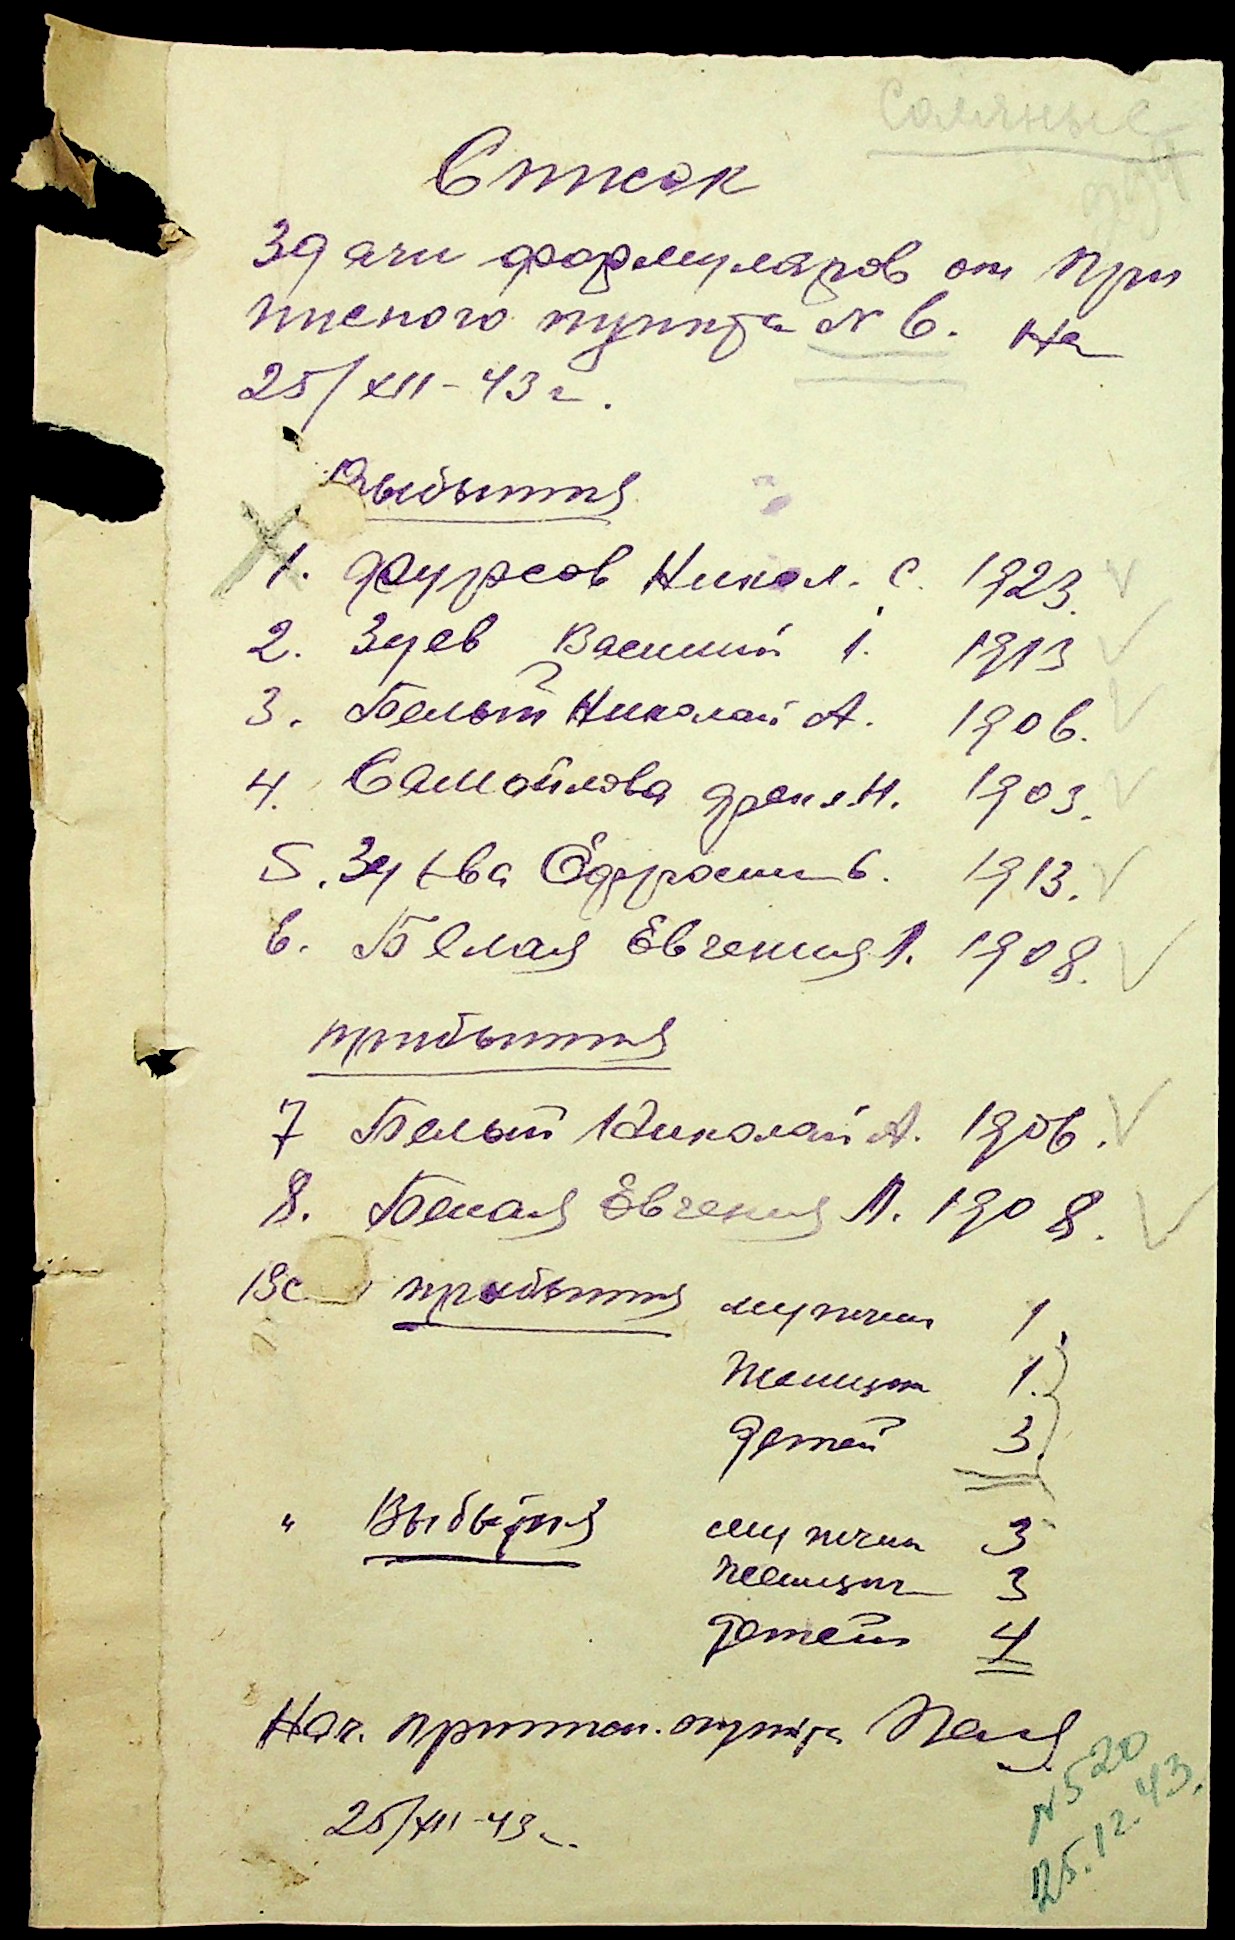 Соляные
Список
Здачи формуляров от при
писного пункта № 6. На
25/XII-43 г.
Выбытия
1. Фурсов Никол. С. 1923.
2. Зуев Василий І. 1913
3. Белый Николай А. 1906.
4. Самойлова Фекл. Н. 1903.
5. Зуева Ефросин 6. 1913.
6. Белая Евгения Л. 1908.
прибытия
7 Белый Николай А. 1906.
8. Белая Евгения Л. 1908.
Вс прибытия мужчин 1
Женщин 1.
Детей 3.
" Выбытия мужчин 3
женщин 3
детей 4
Нач. припис. пункта
25/XII-43 г.
N 520
25.12.43.